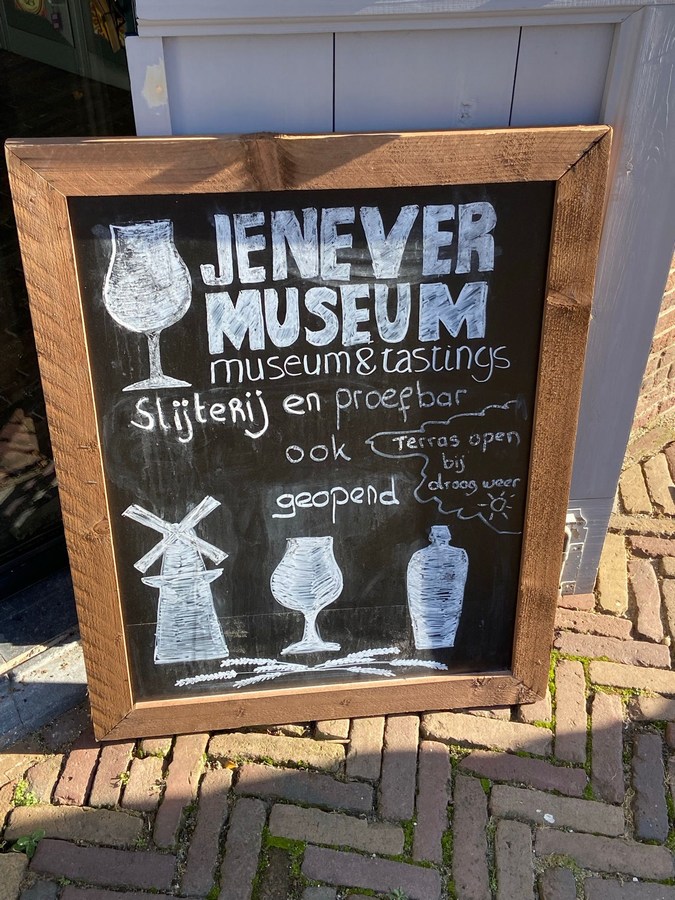 JENEVER
MUSEUM
museum & tastings
SlijteRij en proefbar
ook
geopend
Terras open
bij
droog weer